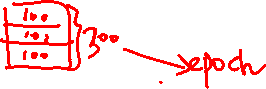 100
100
100
300
epoch